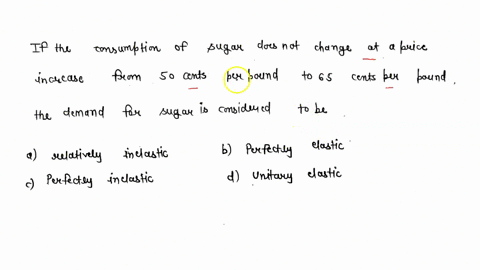 If the consumption of sugar does not change at a price
increase from 50 cents per pound to 65 cents per pound,
the demand for sugar is considered to be
a) relatively inelastic b) Perfectly elastic
c) Perfectly inelastic d) Unitary elastic